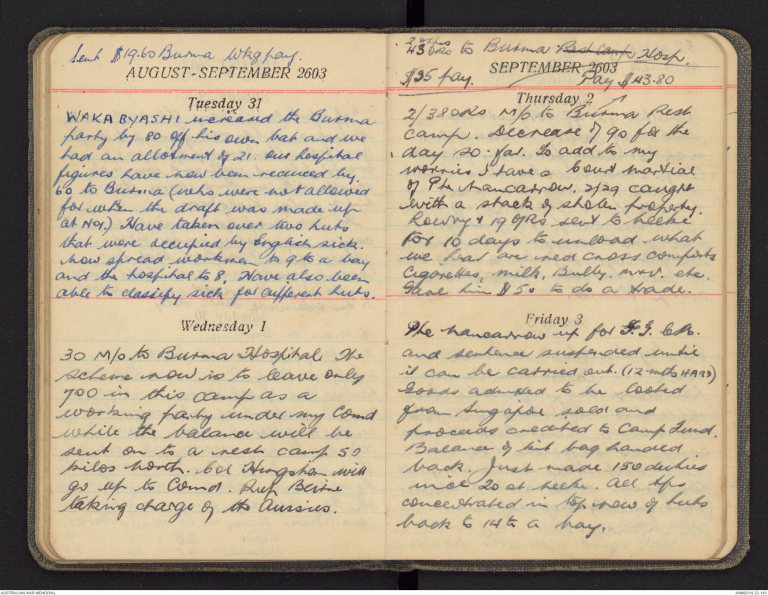 Sent $19.60 Burma Wkg pay.
AUGUST-SEPTEMBER 2603
Tuesday 31
WAKABYASHI increased the Burma
party by 80 off his own bat and we
had an allotment of 21. Our hospital
figures have now been reduced by
60 to Burma (who were not allowed
for when the draft was made up
at No1.) Have taken over two huts
that were occupied by English sick.
Now spread workmen to 9 to a bay
and the hospital to 8. Have also been
able to classify sick for different huts.
Wednesday 1
30 M/o to Burma Hospital The
scheme now is to leave only
700 in this camp as a
working party under my Comd
while the balance will be
sent on to a rest camp 50
kilos north. Col Hingston will
go up to Comd.
taking charge of the Aussies.
2 offrs
43 ORs to Burma Rest Camp Hosp.
SEPTEMBER 2603
$35 pay. Pay $43.80
Thursday 2
2/38 ORs M/o to Burma Rest
camp. Decrease of 90 for the
day so far. To add to my
worries I have a Court Martial
of Pte Nancarrow. 2/29 caught
with a stack of stolen property.
Lowry & 19 ORs sent to
for 10 days to unload what
we hear are red cross comforts
cigarettes, milk, etc.
Gave him $50 to do a trade.
Friday 3
Pte Nancarrow up for F.G.C.M.
and sentence suspended until
it can be carried out. (12 mths HARD)
Goods admitted to be looted
from Singapore sold and
proceeds credited to Camp Fund.
Balance of kit bag handed
back. Just made 150 duties
20 at. All tps
concentrated in top row of huts
back to 14 to a bay.
AUSTRALIAN WAR MEMORIAL